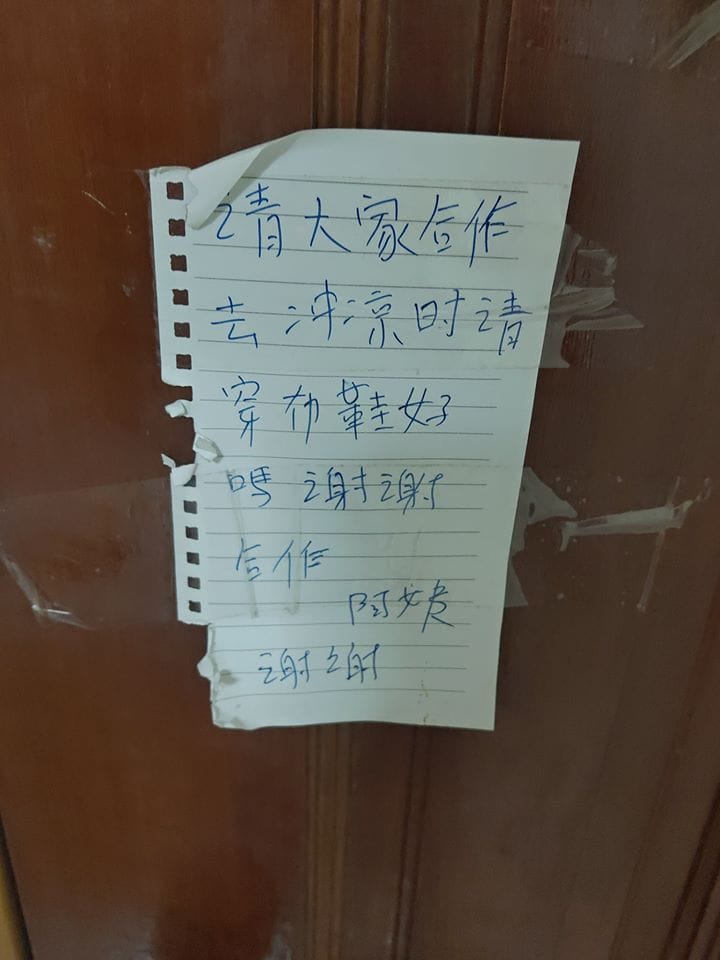 请大家合作
去冲凉时请
穿布鞋好
嗎谢谢
合作
阿
谢谢